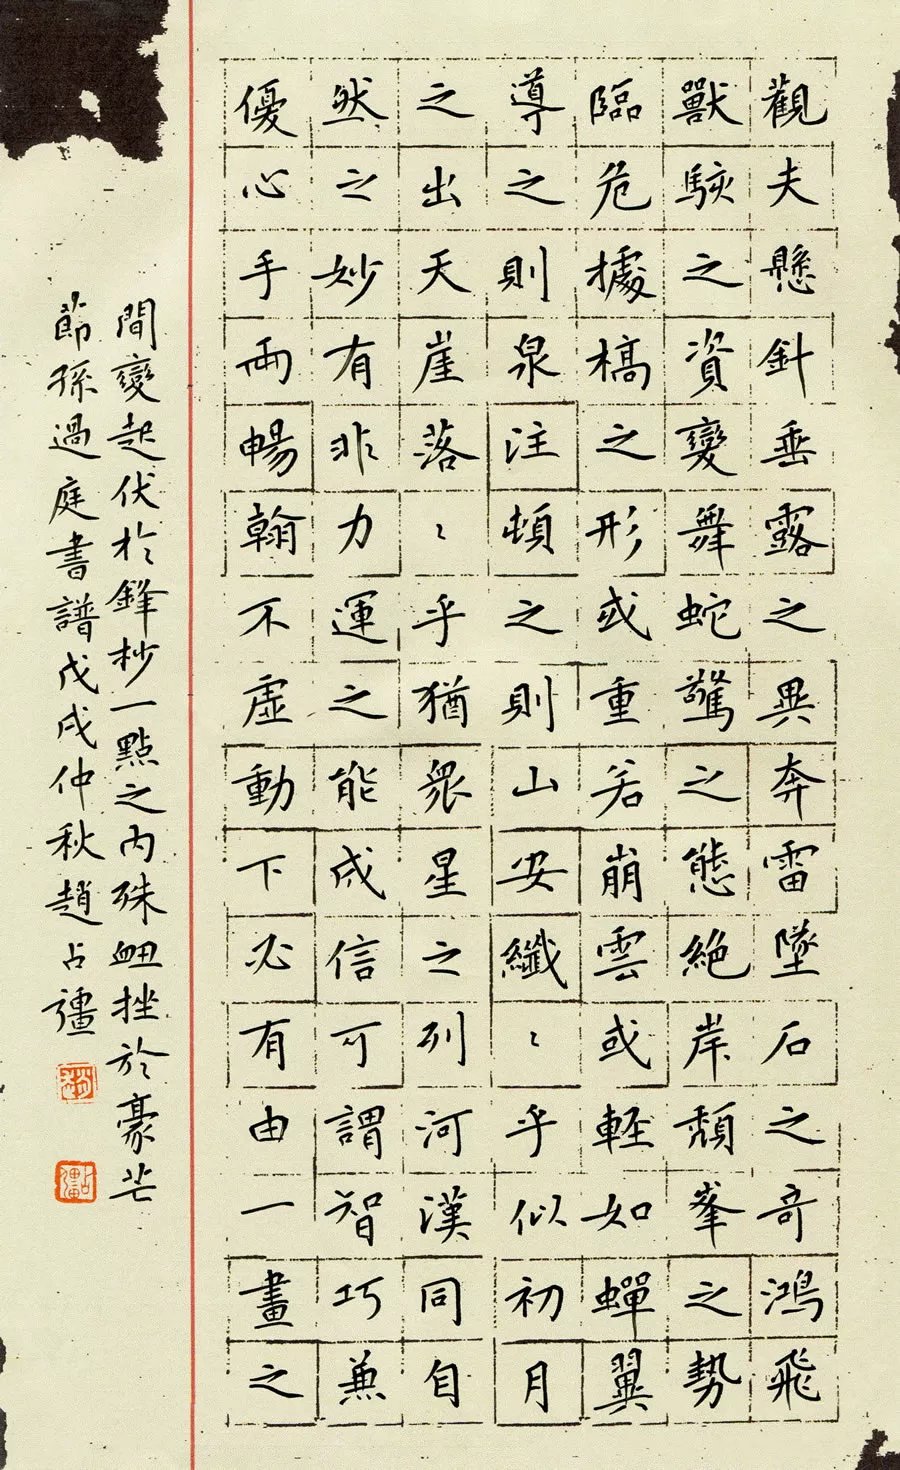 觀夫懸針垂露之異奔雷墜石之奇鴻飛
獸駭之資變舞蛇驚之態絕岸頹峯之勢
臨危據槁之形或重若崩雲或輕如蟬翼
導之則泉注頓之則山安纖〻乎似初月
之出天崖落〻乎猶衆星之列河漢同自
然之妙有非力運之能成信可謂智巧兼
優心手兩暢翰不虛動下必有由一畫之
間變起伏於鋒杪一點之內殊衄挫於豪芒
節孫過庭書譜戊戌仲秋趙占彊
占彊